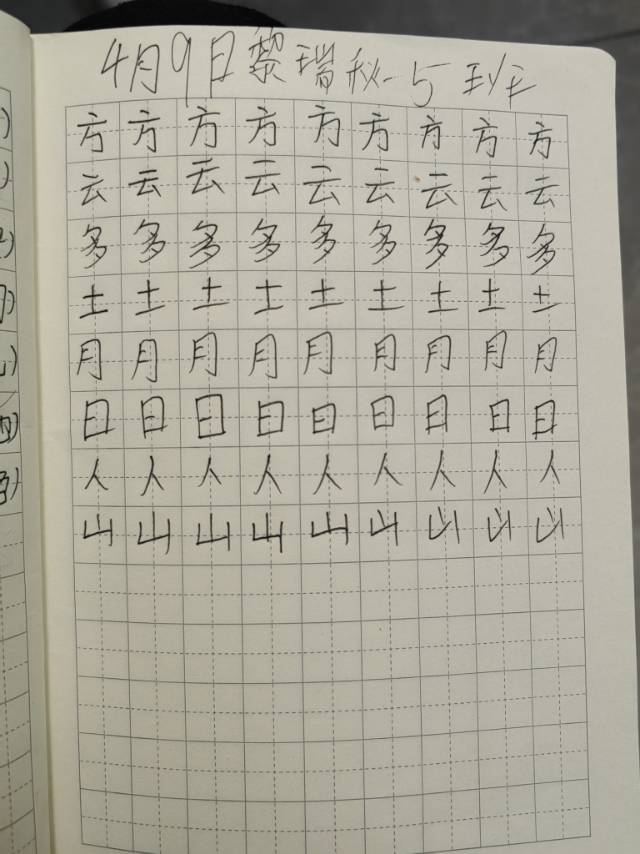 4月9日黎瑞秋一5班
方方方方方方方方方
云云云云云云云云云
多多多多多多多多多
土土土土土土土土土
月月月月月月月月月
日日日日日日日日日
人人人人人人人人人
山山山山山山山山山